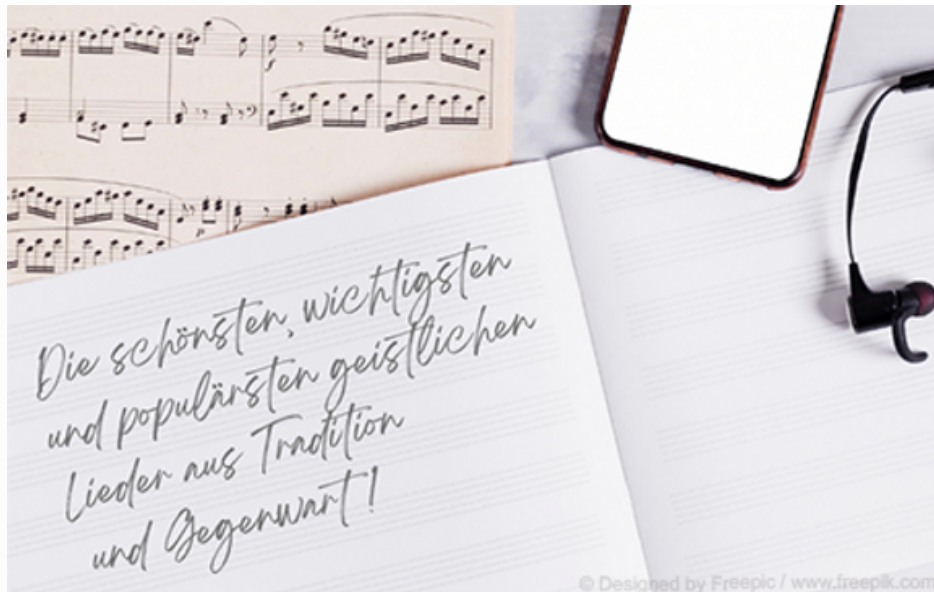 Die schönsten, wichtigsten
und populärsten geistlichen
Lieder aus Tradition
und Gegenwart!
© Designed by Freepic / www.freepik.com